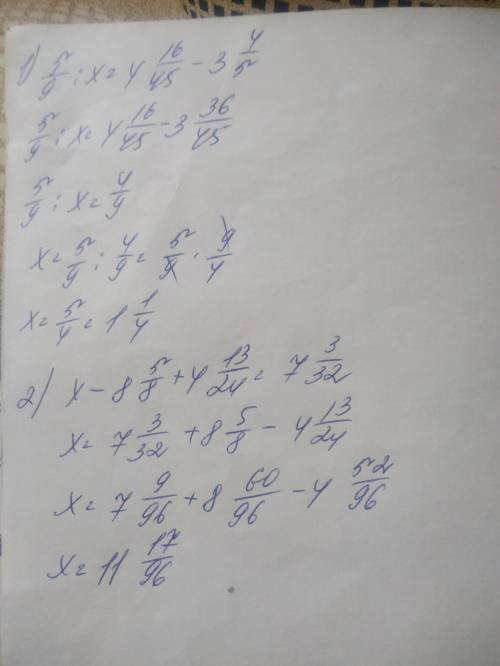 1) 5/9 : x = 4 16/45 - 3 4/5
5/9 : x = 4 16/45 - 3 36/45
5/9 : x = 4/9
x = 5/9 : 4/9 = 5/9 · 9/4
x = 5/4 = 1 1/4
2) x - 8 5/8 + 4 13/24 = 7 3/32
x = 7 3/32 + 8 5/8 - 4 13/24
x = 7 9/96 + 8 60/96 - 4 52/96
x = 11 17/96